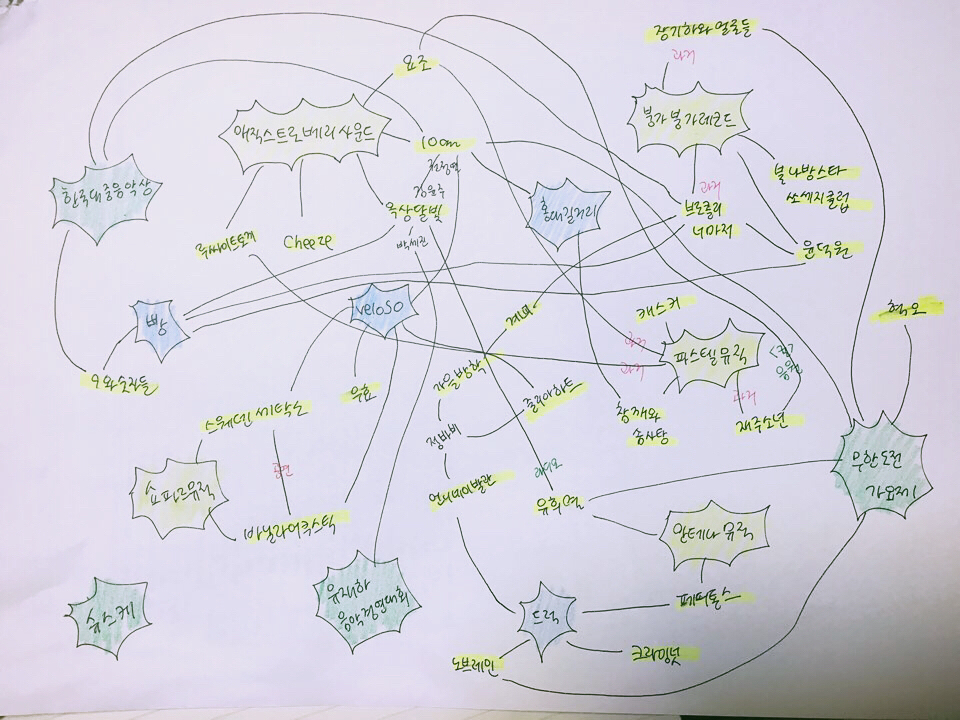 장기하와 얼굴들
요조
과거
붕가붕가레코드
매직스트로베리사운드
10cm
권정열
한국대중음악상
과거
불나방스타
쏘세지클럽
김윤주
옥상달빛
홍대길거리
브로콜리
너마저
루싸이트토끼
Cheeze
박세진
윤덕원
빵
veloso
계피
캐스커
혁오
과거
파스텔뮤직
9와 숫자들
가을방학
과거
우효
줄리아하트
과거
스웨덴세탁소
정바비
참깨와
솜사탕
재주소년
무한도전
가요제
쇼파르뮤직
언니네이발관
유희열
바닐라어쿠스틱
안테나뮤직
슈스케
유재하
음악경연대회
드럭
페퍼톤스
노브레인
크라잉넛